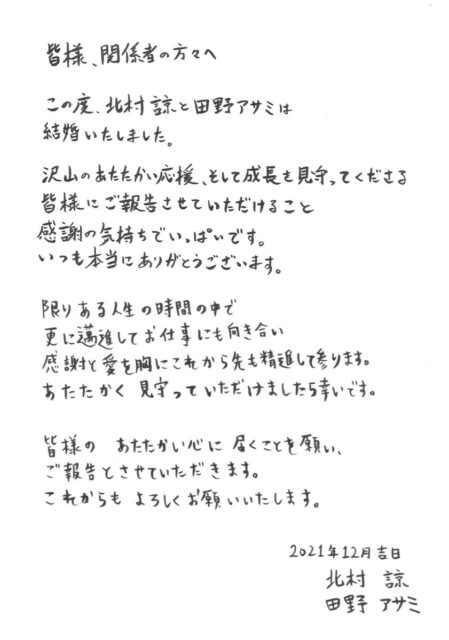 皆様、関係者の方々へ
この度、北村 諒と田野アサミは
結婚いたしました。
沢山のあたたかい応援、そして成長を見守ってくださる
皆様にご報告させていただけること
感謝の気持ちでいっぱいです。
いつも本当にありがとうございます。
限りある人生の時間の中で
更に邁進してお仕事にも向き合い
感謝と愛を胸にこれから先も精進して参ります。
あたたかく見守っていただけましたら幸いです。
皆様の あたたかい心に届くことを願い、
ご報告とさせていただきます。
これからもよろしくお願いいたします。
2021年12月吉日
北村 諒
田野 アサミ